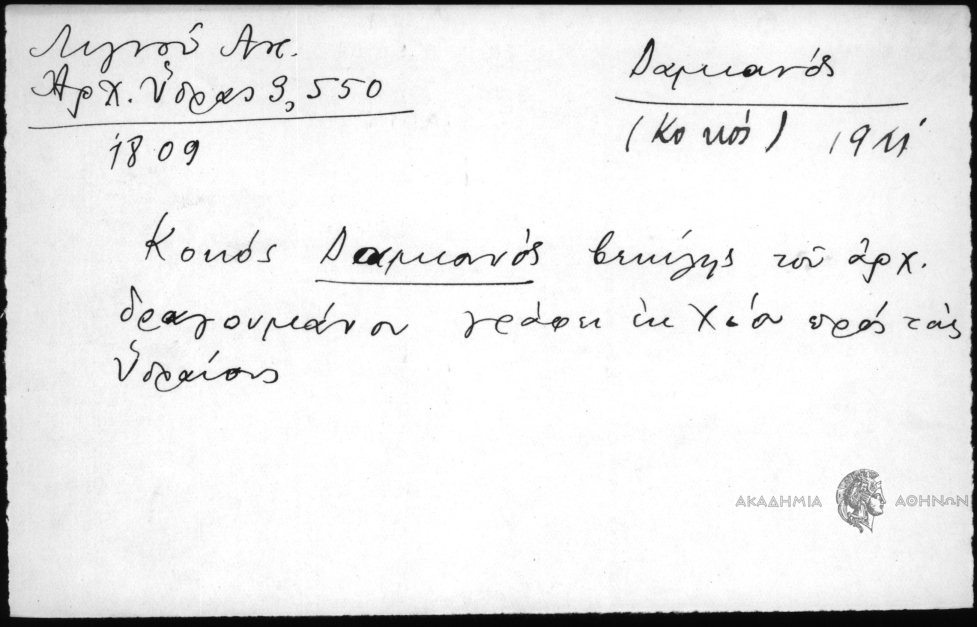 Λιγνού Αντ.
Ἀρχ. Ὕδρας 3, 550
1809
Δαμιανός
(Κοκός) 1911
Κοκός Δαμιανός βεκίλης τοῦ ἀρχ.
δραγουμάνου γράφει ἐκ Χίου πρός τούς
Ὑδραίους
ΑΚΑΔΗΜΙΑ ΑΘΗΝΩΝ